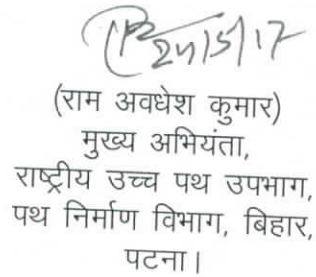 24/5/17
(राम अवधेश कुमार)
मुख्य अभियंता,
राष्ट्रीय उच्च पथ उपभाग,
पथ निर्माण विभाग, बिहार,
पटना।